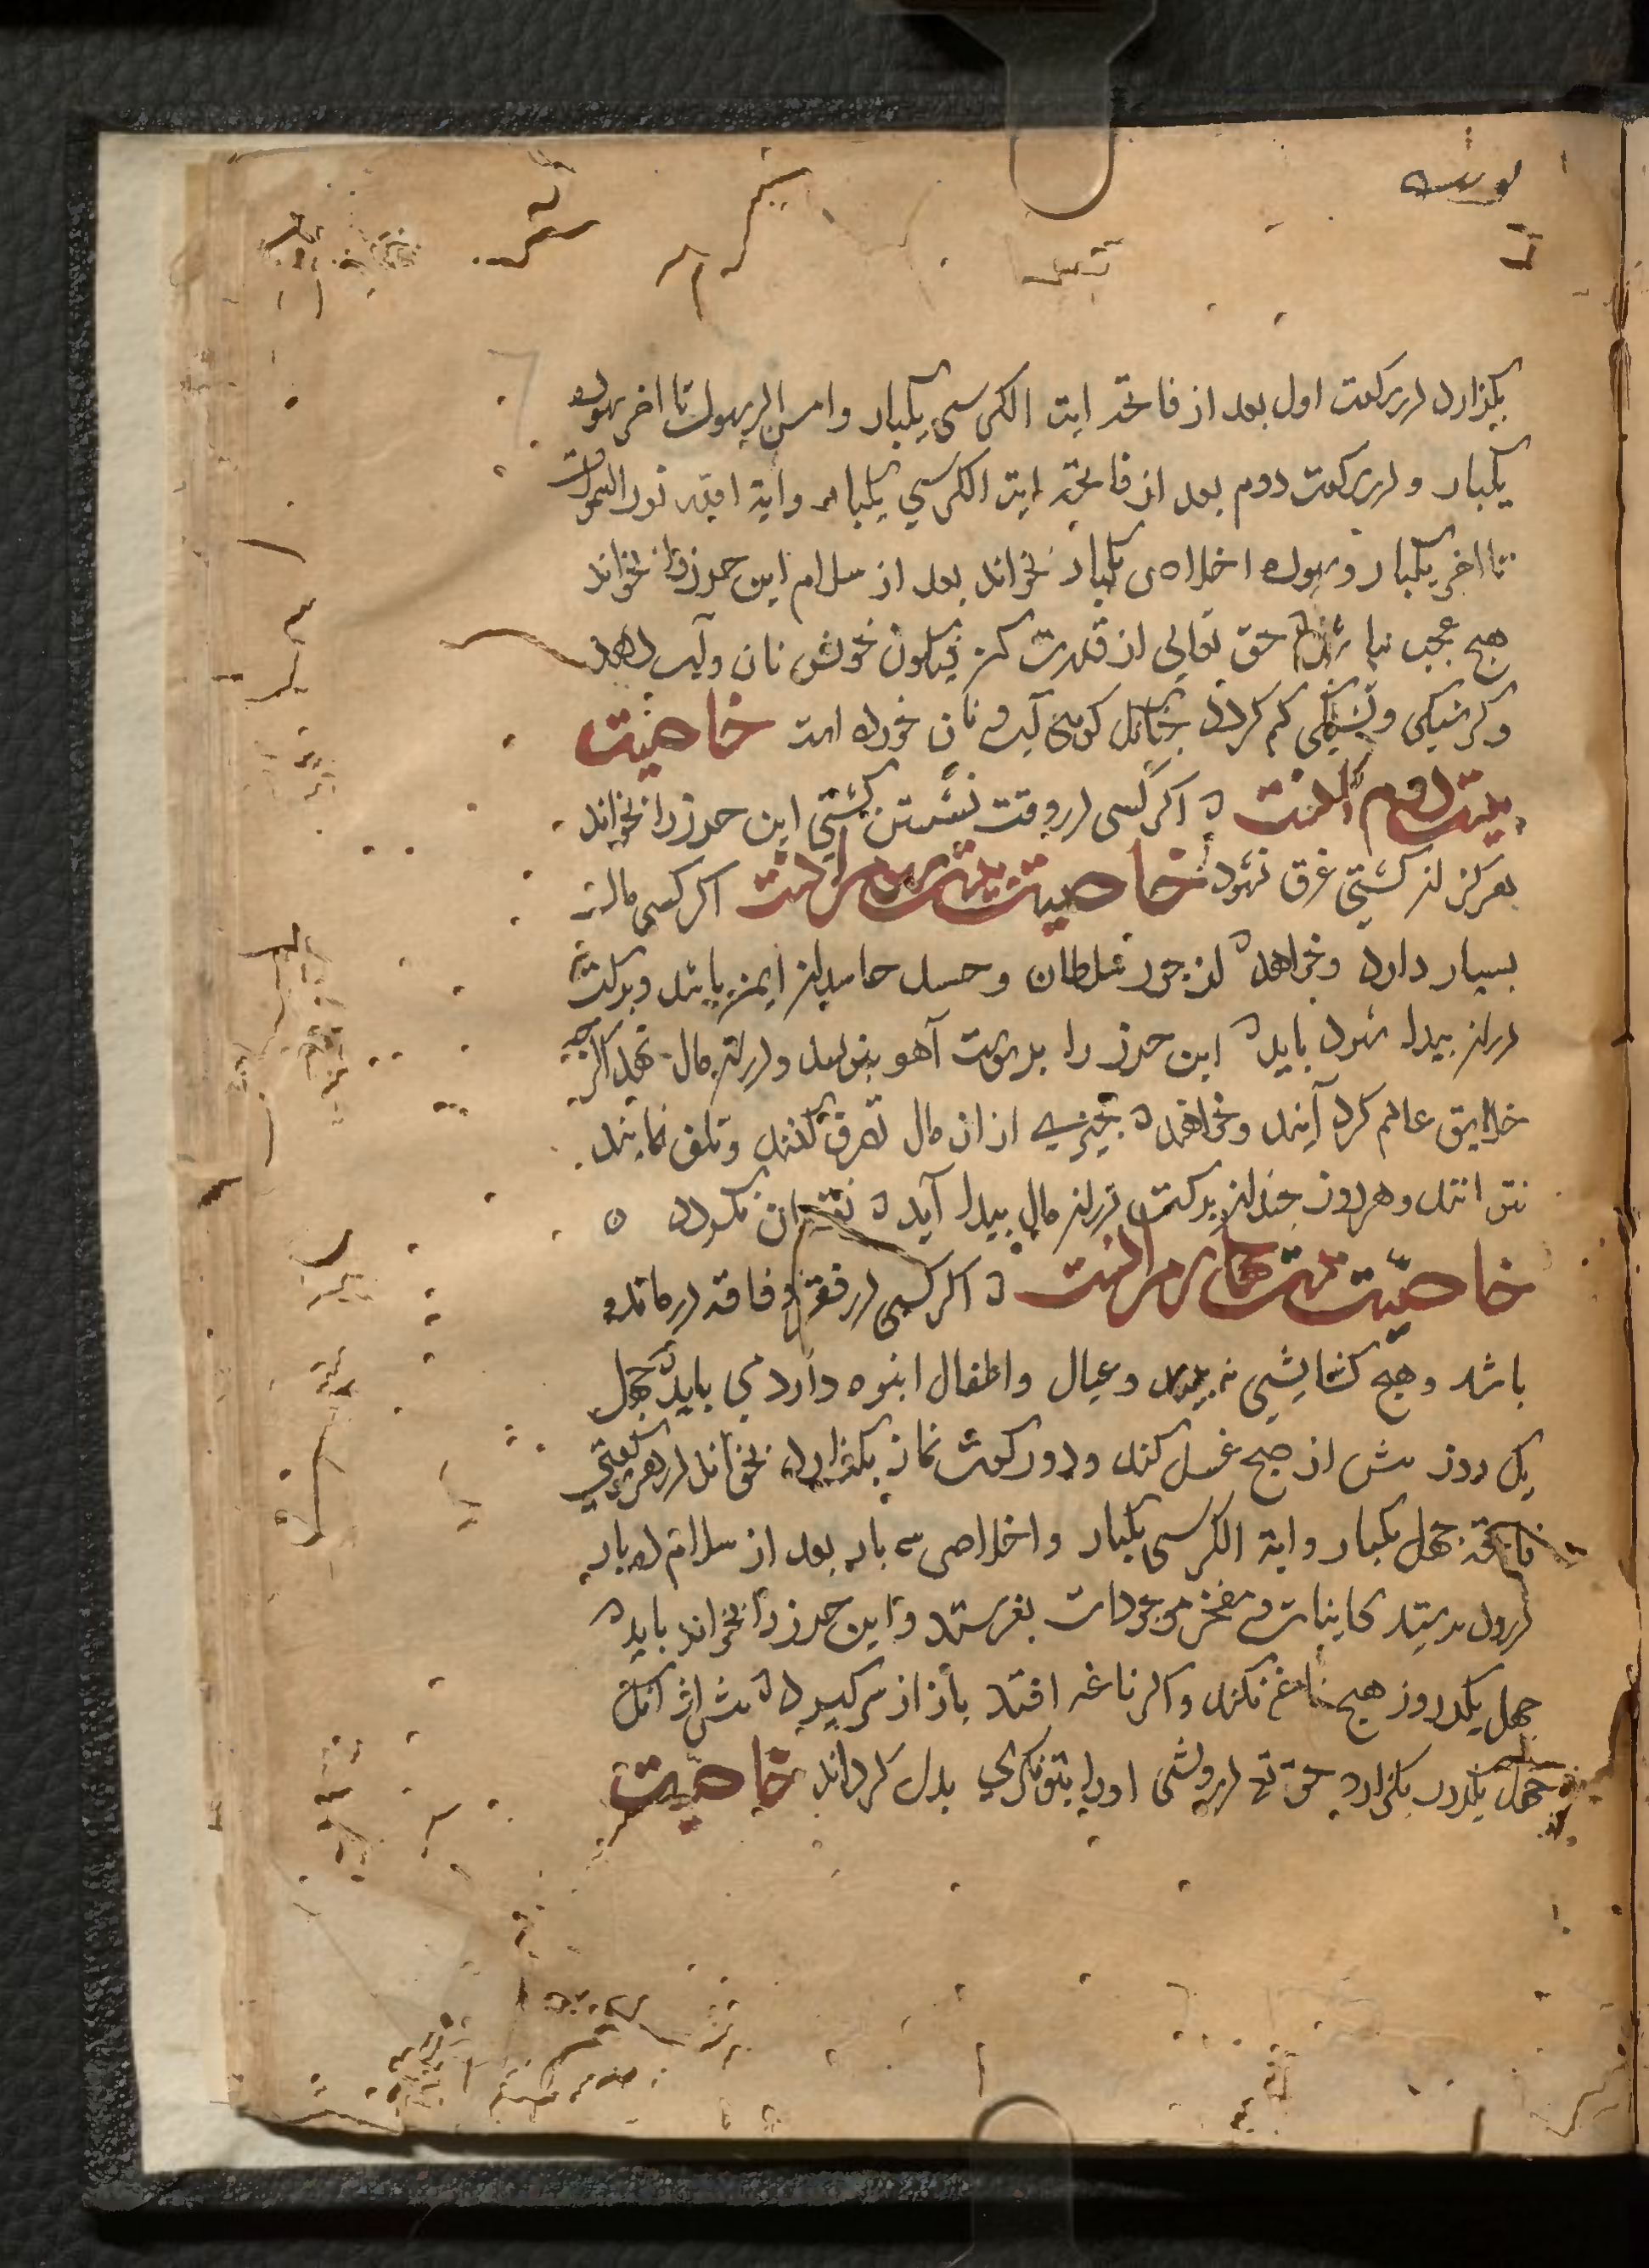 بگزارد در رکعت اول بعد از فاتحه ایت الکرسی یکبار وامن الرسول تا اخر سوره
یکبار و در رکعت دوم بعد از فاتحه ایت الکرسي یکبار وایة الله نور السموات
تا اخر یکبار وسوره اخلاص یکبار بخواند بعد از سلام این حرز را بخواند
هیچ عجب نباشد که حق تعالی از قدرت کن فیکون خودش نان وآب دهد
وکرسنکی وتشنکی کم کردد جنانک کویی آب و نان خورده است خاصیت
بیست دوم آنست که اکر کسی در وقت نشستن کشتي این حرز را بخواند
هرکز ان کشتي غرق نشود خاصیت بیست سوم انست اکر کسی مال
بسیار دارد وخواهد که از جور سلطان وحسد حاسدان ایمن باشد وبرکت
دران پیدا شود باید که این حرز را بر پوست آهو بنویسد ودران مال نهد اکرچه
خلایق عالم کرد آیند وخواهند که بچیزی از ان مال تصرف کنند وتلف نمایند
نتوانند وهر روز جندان برکت دران مال پیدا آید که نقصان نکردد ه
خاصیت بیست چهارم انست که اکر کسی در فقر و فاقه درمانده
باشد وهیچ کشایشي نه بیند وعیال واطفال انبوه دارد می باید که جهل
یک روز پیش از صبح غسل کند ودو رکعت نماز بکذارد بخواند در هر رکعتي
فاتحة جهل یکبار وایة الکرسی یکبار واخلاص سه بار بعد از سلام ده بار
درود بر سید کاینات و مفخر موجودات بفرستد و این حرز را بخواند باید که
جهل یکروز هیچ ناغه نکند واکر ناغه افتد باز از سر کیرد که پیش از آنک
جهل یکروز بکزارد حق تع درویشی اورا بتونکري بدل کرداند خاصیت